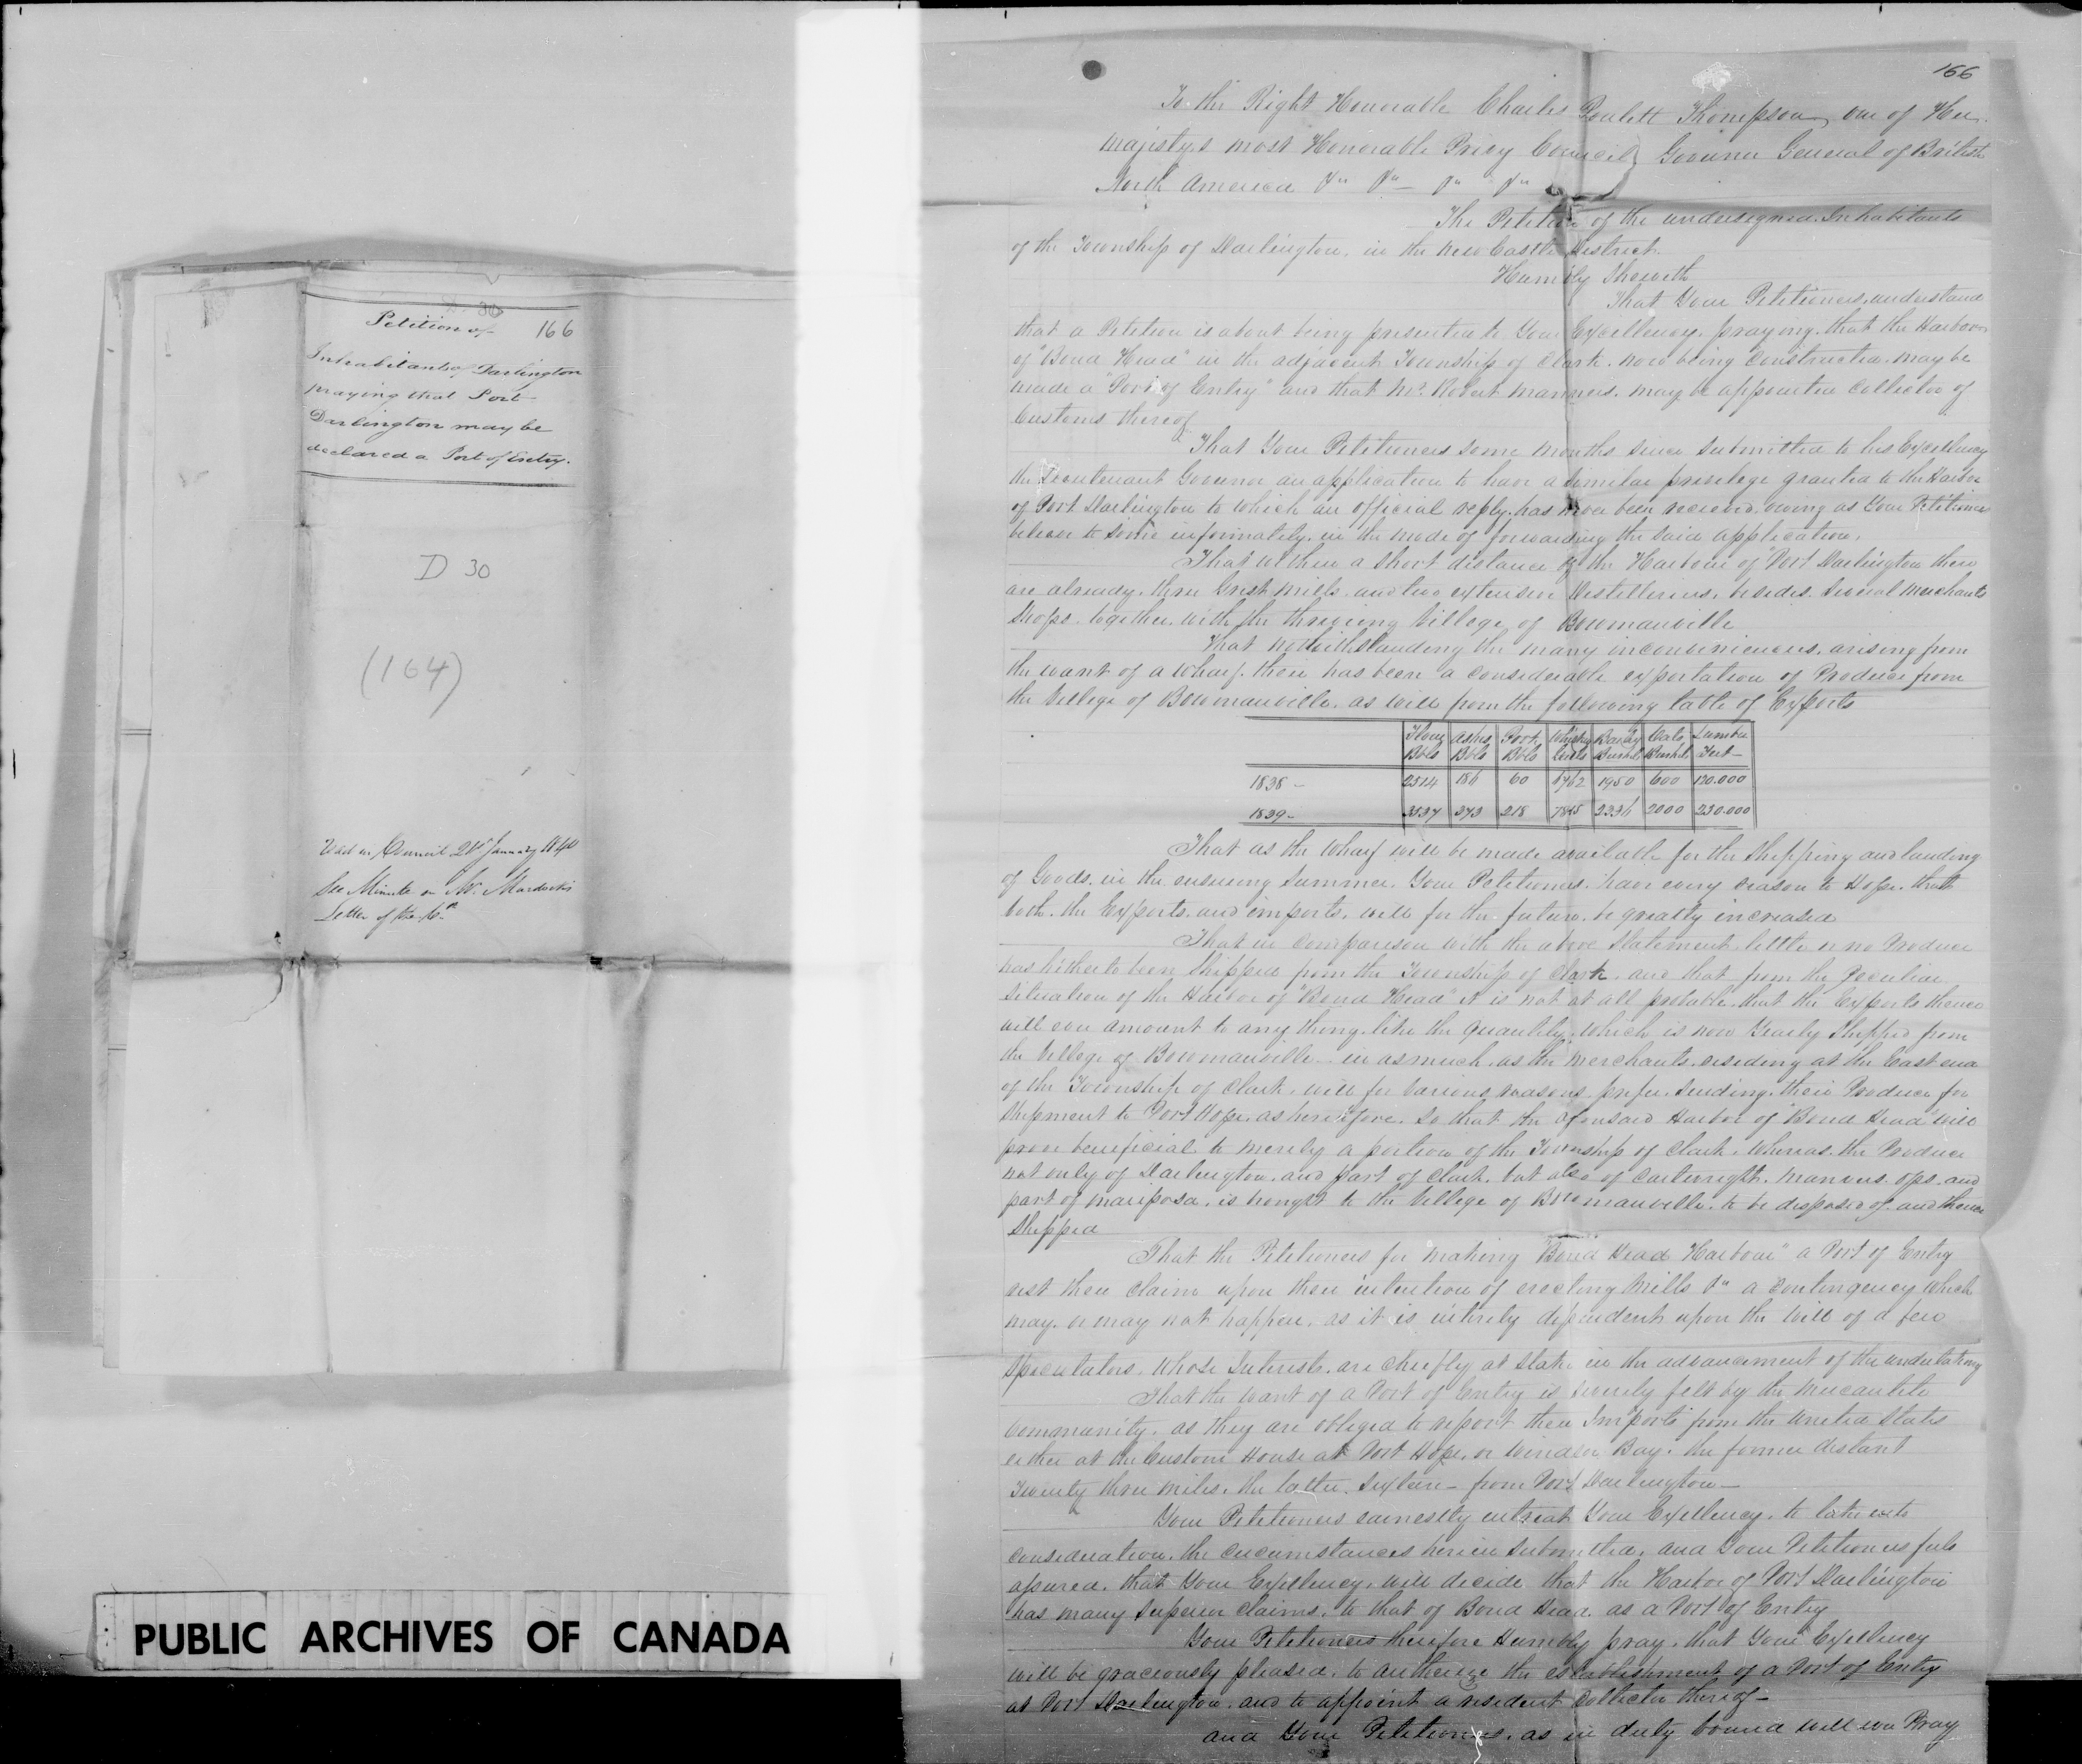 D. 30
Petition of 166
Inhabitants of Darlington
praying that Port
Darlington may be
declared a Port of Entry.
D 30
(164)
Read in Council 21st January 1840
See Minute on Mr. Murdoch's
Letter of the 16th
PUBLIC ARCHIVES OF CANADA
166
To the Right Honorable Charles Poulett Thompson, one of Her
majesty,s most Honorable Privy Council Governor General of British
North America &c &c &c &c
The Petition of the undersigned Inhabitants
of the Township of Darlington, in the New Castle District.
Humbly Sheweth
That Your Petitioners, understand
that a Petition is about being presented to Your Excellency, praying, that the Harbour
of "Bond Head" in the adjacent Township of Clark, now being constructed, may be
made a "Port of Entry" and that Mr. Robert Manners, may be appointed Collector of
Customs thereof
That Your Petitioners some months since submitted to his Excellency
the Lieutenant Governor an application to have a similar privilege granted to the Harbor
of Port Darlington to which an official reply, has never been received, owing as Your Petitioners
believe to some informality, in the mode of forwarding the said application.
That within a short distance of the Harbour of "Port Darlington there
are already, three Grist Mills and two extensive Distilleries, besides several Merchants
Shops together with the thriving Village of Bowmanville
That notwithstanding the many inconveniencies, arising from
the want of a Wharf, there has been a considerable exportation of Produce from
the Village of Bowmanville, as will from the following table of Exports
Flour Ashes Pork Whiskey Barley Oats Lumber
Bbls Bbls Bbls Bushl. Bushl. Feet
1838 - 2314 186 60 1950 600 120.000
1839 - 3537 373 218 2000 230.000
That as the Wharf will be made available for the Shipping and landing
of Goods, in the ensuing Summer, Your Petitioners, have every reason to Hope, that
both, the Exports, and imports, will for the future, be greatly increased
That in comparison with the above Statement, little or no Produce
has hitherto been Shipped from the Township of Clark, and that from the Peculiar
Situation of the Harbor of "Bond Head" it is not at all probable, that the Exports thence
will ever amount to any thing, like the quantity, which is now Yearly Shipped from
the Village of Bowmanville - in as much, as the Merchants, residing at the East end
of the Township of Clark, will for various reasons prefer, sending, their Produce for
Shipment to Port Hope, as heretofore. So that the aforesaid Harbor of "Bond Head" will
prove beneficial to merely a portion of the Township of Clark, whereas the Produce
not only of Darlington, and part of Clark, but also of Cartwright, Manvers, Ops, and
part of Mariposa, is brought to the Village of Bowmanville, to be disposed of, and thence
Shipped
That the Petitioners for making "Bond Head Harbour" a Port of Entry
rest their claim upon their intention of erecting Mills &c a contingency which
may, or may not happen, as it is intirely dependent upon the will of a few
Speculators, whose Interests, are chiefly at stake in the advancement of the undertaking
That the want of a Port of Entry is severely felt by the Mercantile
community, as they are obliged to report their Imports from the United States
either at the Custom House at Port Hope, or Windsor Bay, the former distant
Twenty three miles, the latter Sixteen - from Port Darlington -
Your Petitioners earnestly entreat Your Excellency, to take into
consideration, the circumstances herein submitted, and Your Petitioners feel
assured, that Your Excellency, will decide that the Harbor of Port Darlington
has many superior claims, to that of Bond Head, as a Port of Entry
Your Petitioners therefore Humbly pray, that Your Excellency
will be graciously pleased, to authorize the establishment of a Port of Entry
at Port Darlington, and to appoint a resident Collector thereof -
and Your Petitioners, as in duty bound will ever Pray